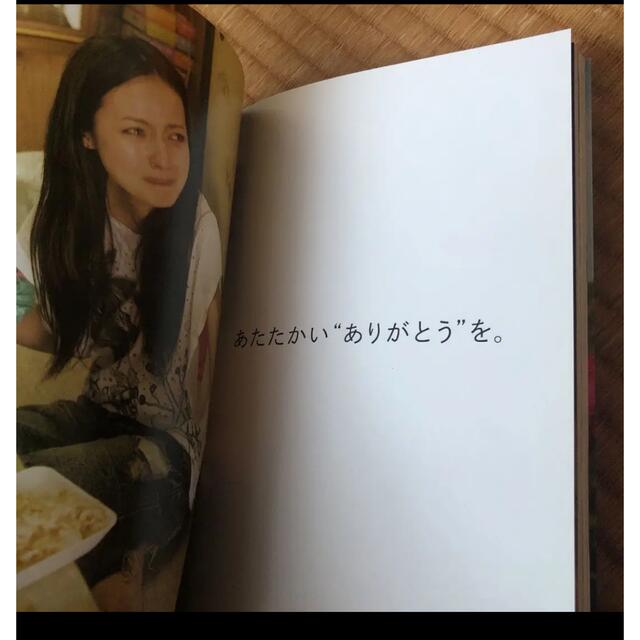 あたたかい“ありがとう”を。